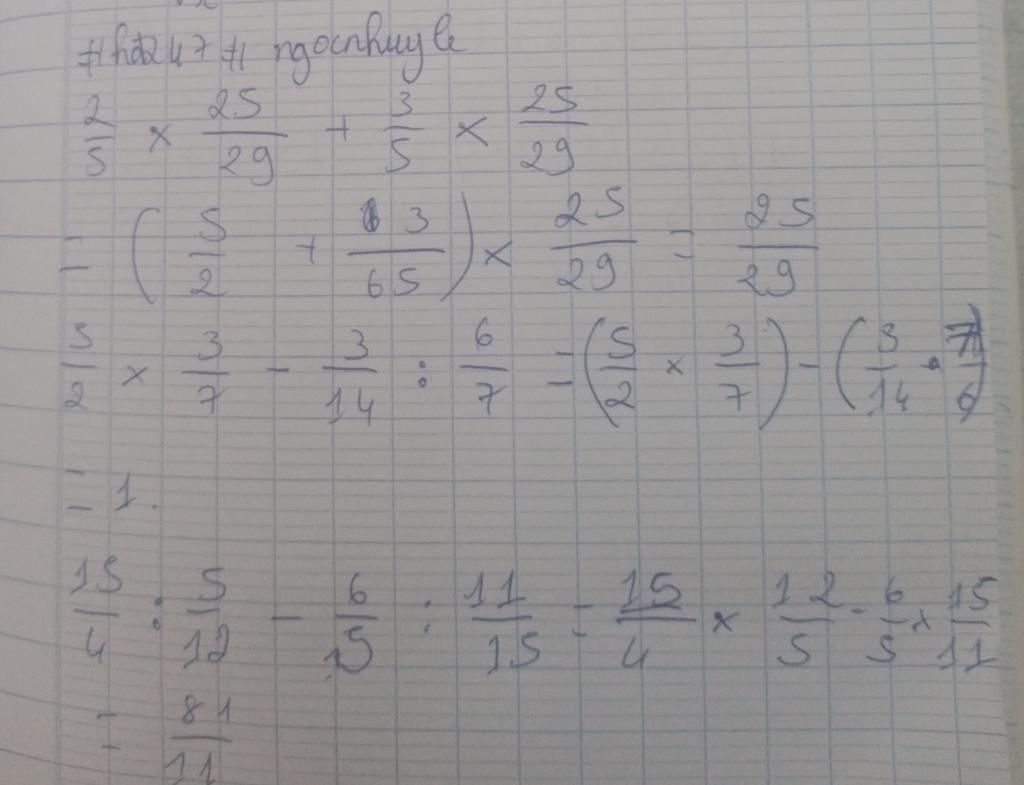 #hỏi247# ngocnhuyle
2/5 × 25/29 + 3/5 × 25/29
= (5/2 + 3/65) × 25/29 = 25/29
5/2 × 3/7 - 3/14 : 6/7 = (5/2 × 3/7) - (3/14 . 7/6)
= 1.
15/4 : 5/12 - 6/5 : 11/15 = 15/4 × 12/5 - 6/5 × 15/11
= 81/11